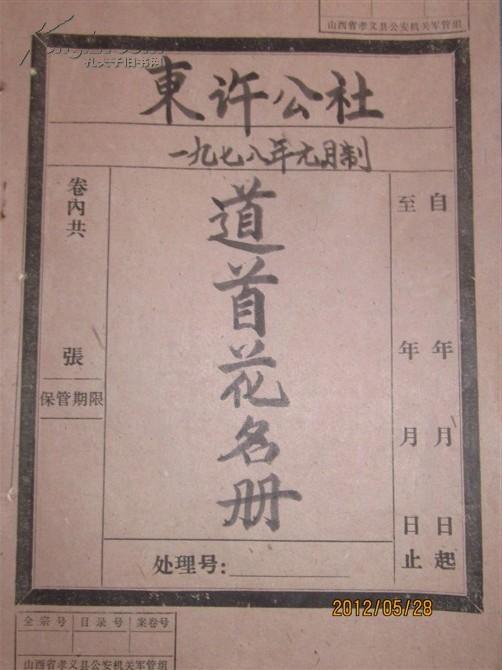 山西省孝义县公安机关军管组
孔夫子旧书网
東许公社
一九七八年元月制
卷內共 張
保管期限
道首花名册
自 年 月 日起
至 年 月 日止
处理号:
2012/05/28
全宗号 目录号 案卷号
山西省孝义县公安机关军管组